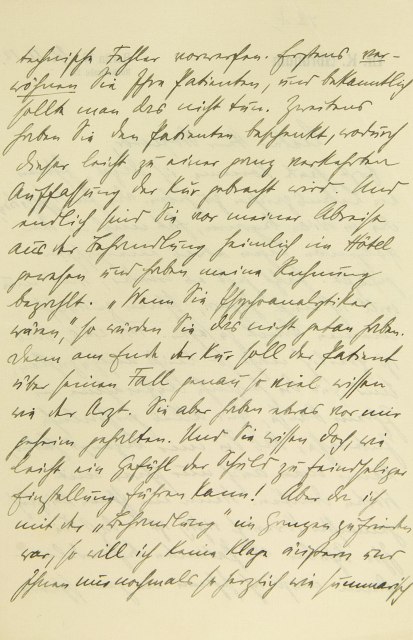 technische Fehler vorwerfen. Erstens ver-
wöhnen Sie Ihre Patienten, und bekanntlich
sollte man das nicht tun. Zweitens
haben Sie den Patienten beschenkt, wodurch
dieser leicht zu einer ganz verkehrten
Auffassung der Kur gebracht wird. Und
endlich sind Sie vor meiner Abreise
aus der Behandlung heimlich im Hôtel
gewesen und haben meine Rechnung
bezahlt. „Wenn Sie Psychoanalytiker
wären“, so würden Sie das nicht getan haben.
Denn am Ende der Kur soll der Patient
über seinen Fall genau so viel wissen
wie der Arzt. Sie aber haben etwas vor mir
geheim gehalten. Und Sie wissen doch, wie
leicht ein Gefühl der Schuld zu feindseliger
Einstellung führen kann! Aber da ich
mit der „Behandlung“ im Ganzen zufrieden
war, so will ich keine Klage äussern und
Ihnen nur nochmals so herzlich wie summarisch